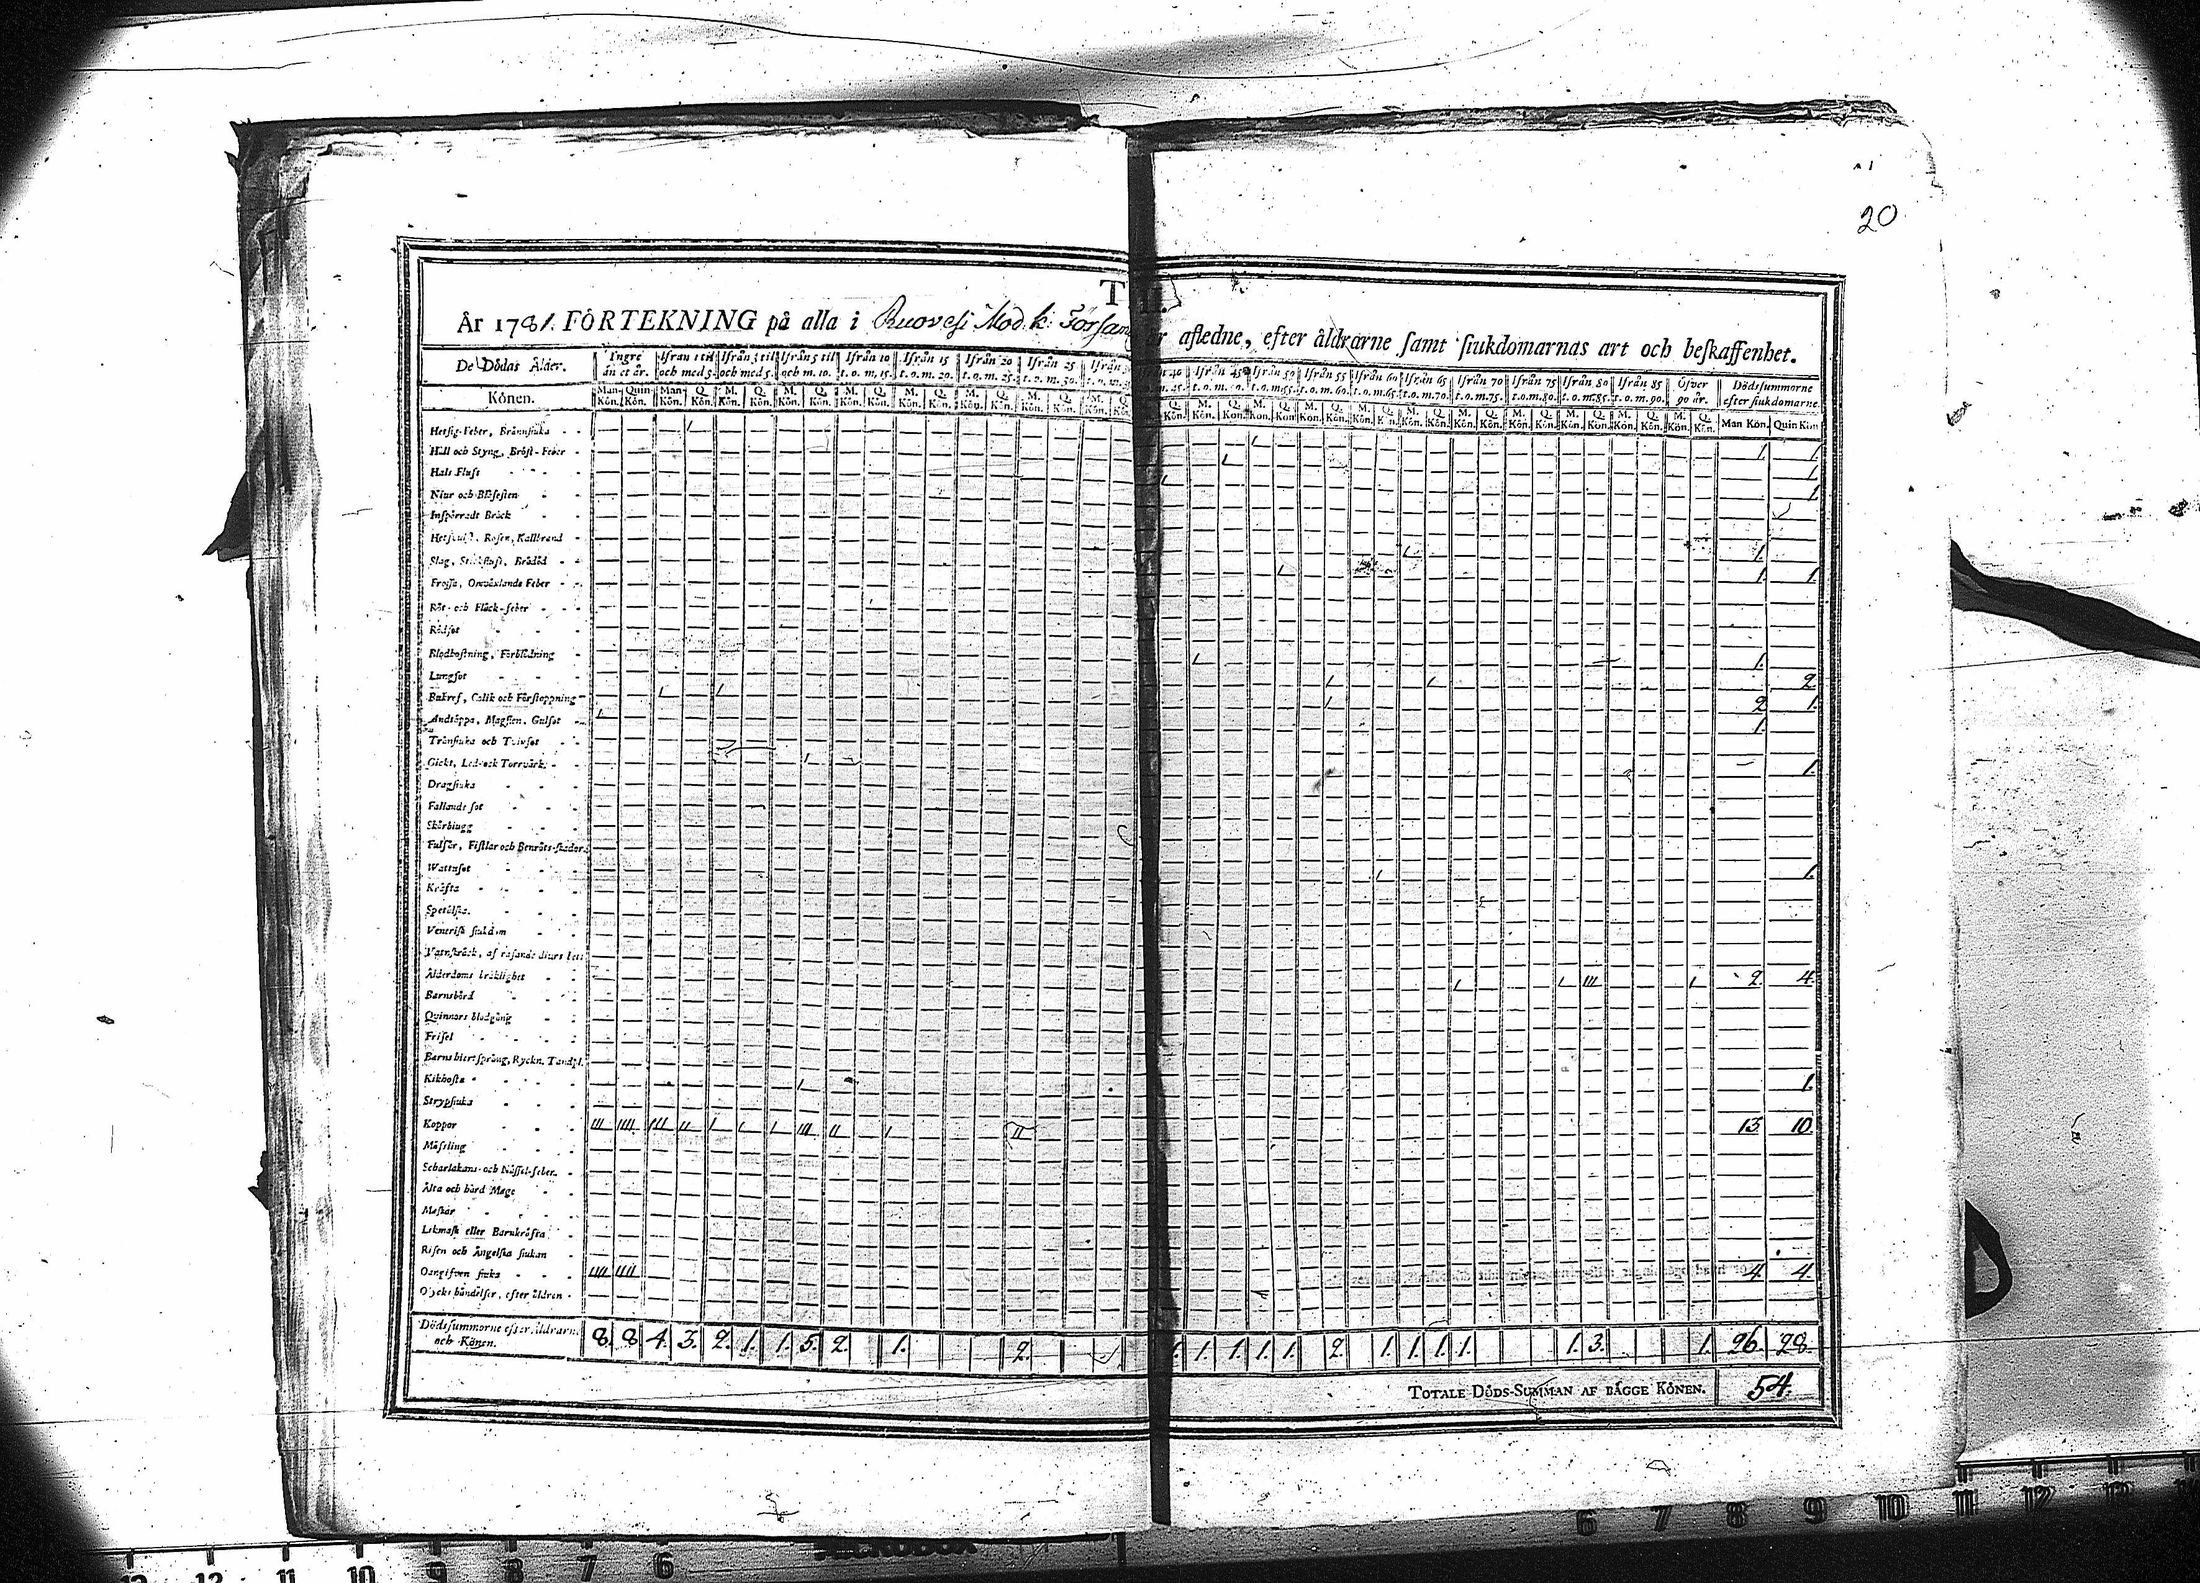 20
År 1781. FÖRTEKNING på alla i Ruovesi Mod. k: afledne, efter åldrarne samt siukdomarnas art och beskaffenhet.
De Dödas Ålder. Ingre än et år. Ifrån 1 til och med 3. Ifrån 3 til och med 5. Ifrån 5 til och m. 10. Ifrån 10 t. o. m. 15. Ifrån 15 t. o. m. 20. Ifrån 20 t. o. m. 25. Ifrån 25 t. o. m. 30. Ifrån 45 Ifrån 50 t. o. m. 55. Ifrån 55 t. o. m. 60. Ifrån 60 t. o. m. 65. Ifrån 65 t. o. m. 70. Ifrån 70 t. o. m. 75. Ifrån 75 t. o. m. 80. Ifrån 80 t. o. m. 85. Ifrån 85 t. o. m. 90. Öfver 90 år. Dödssummorne efter siukdomarne.
Könen. Man Kön. Quin Kön. Man Kön. Q. Kön. M. Kön. Q. Kön. M. Kön. Q. Kön. M. Kön. Q. Kön. M. Kön. Q. Kön. Man Kön. Quin Kön
Hetsig-Feber, Brännsiuka 1. 1.
Håll och Styng, Bröst-Feber 1.
Hals Fluss 1.
Niur och Blåsesten
Inspärradt Bråck
Rosen, Kallbrand 1.
Slag, Brådöd 1. 1.
Frossa, Omväxlande Feber
Röt- och Fläck-feber
Rödsot
Blodhostning, Förblödning 1.
Lungsot 2.
Bukref, Colik och Förstoppning 2. 1.
Andtäppa, Magsten, Gulsot 1.
Trånsiuka och Tvinsot
Gickt, Led- och Torrvärk 1.
Dragsiuka
Fallande sot
Skörbiugg
Fulsår, Fistlar och Benröts-skador
Wattusot 1.
Kräfta
Spetälska
Venerisk siukdom
Vatnskräck, af rasande diurs bett
Ålderdoms bräcklighet 2. 4.
Barnsbörd
Qvinnors blodgång
Frisel
Barns hiertsprång, Ryckn. Tandsl.
Kikhosta 1.
Strypsiuka
Koppor 13. 10.
Mässling
Scharlakans- och Nässel-feber
Älta och hård Mage
Maskar
Likmask eller Barnkräfta
Risen och Ängelska siukan
Oangifven siuka 4. 4.
Olycks händelser, efter åldren
Dödssummorne efter åldrarne och Könen. 8. 8. 4. 3. 2. 1. 1. 5. 2. 1. 2. 1. 1. 1. 1. 1. 2. 1. 1. 1. 1. 1. 3. 1. 26. 28.
TOTALE DÖDS-SUMMAN AF BÄGGE KÖNEN. 54.
12 11 10 9 8 7 6
6 7 8 9 10 11 12 13